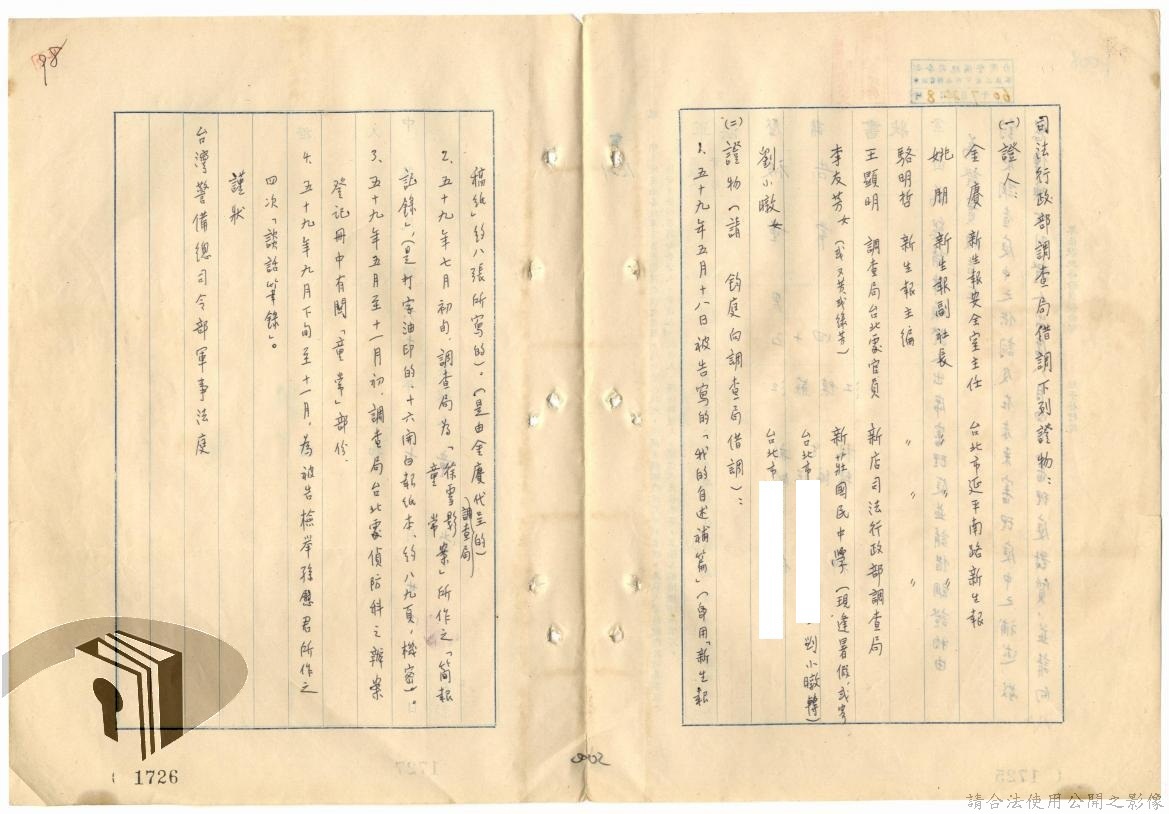 司法行政部調查局借調下列證物：
(一)證人：
金賡　新生報安全室主任　台北市延平南路新生報
姚朋　新生報副社長　〃　〃　〃
駱明哲　新生報主編　〃　〃　〃
王顯明　調查局台北處官員　新店司法行政部調查局
李友芳女（或又黃或徐芳）　新莊國民中學（現逢暑假，或寄
台北市　劉小暾轉）
劉小暾女　台北市
(二)證物（請　鈞庭向調查局借調）：
1、五十九年五月十八日被告寫的「我的自述補篇」（係用「新生報
稿紙」約八張所寫的）。（是由金賡代呈的）
調查局
2、五十九年七月初旬，調查局為「徐雪影　童常　案」所作之「簡報
記錄」，（是打字油印的，十六開白報紙本，約八九頁，機密）。
3、五十九年五月至十一月初，調查局台北處偵防科之辦案
登記冊中有關「童常」部份，
4、五十九年九月下旬至十一月，為被告檢舉孫應君所作之
四次「談話筆錄」。
謹狀
台灣警備總司令部軍事法庭
1726
1725
1727
60 7 8
98
請合法使用公開之影像